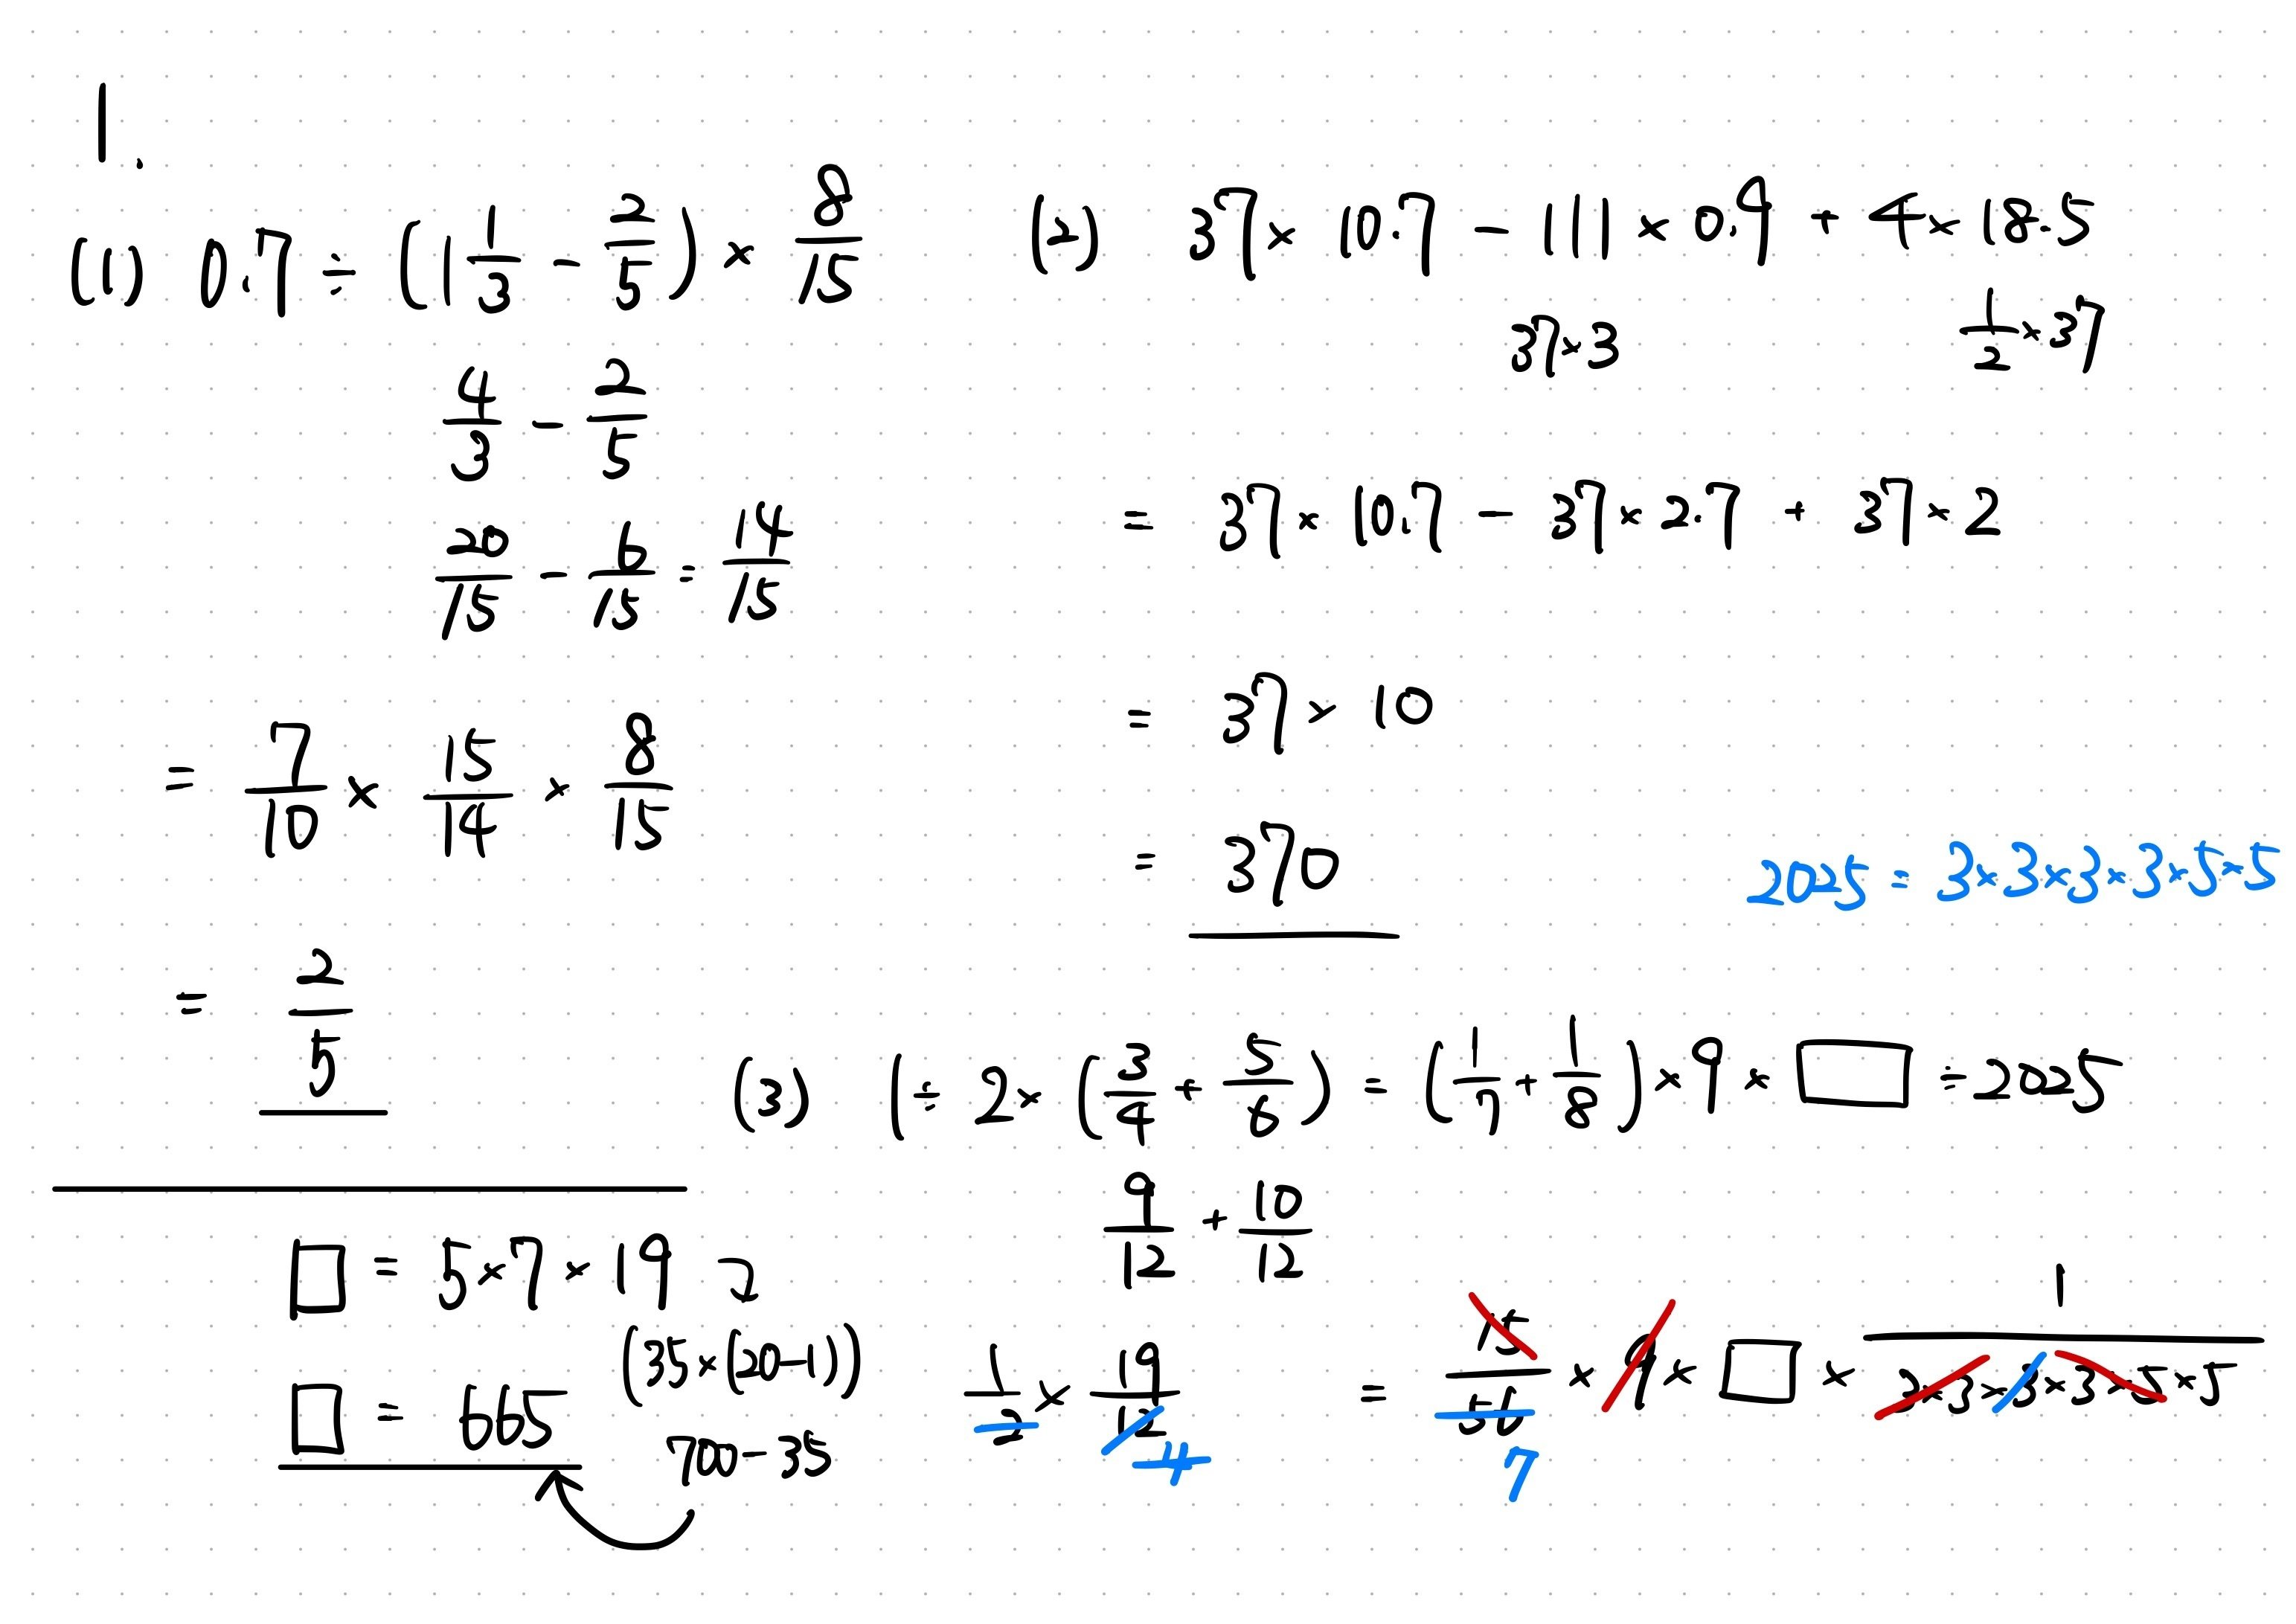 1.
(1) 0.7 ÷ (1 1/3 − 2/5) × 8/15
4/3 − 2/5
20/15 − 6/15 = 14/15
= 7/10 × 15/14 × 8/15
= 2/5
(2) 37 × 10.7 − 111 × 0.9 + 4 × 18.5
37×3
1/2 × 37
= 37 × 10.7 − 37 × 2.7 + 37 × 2
= 37 × 10
= 370
2025 = 3×3×3×3×5×5
(3) 1 ÷ 2 × (3/4 + 5/6) = (1/7 + 1/8) × 9 × □ ÷ 2025
9/12 + 10/12
1/2 × 19/12 = 15/56 × 9 × □ × 1/3×3×3×3×5×5
4
7
□ = 5×7×19
(35×(20−1))
□ = 665
700−35